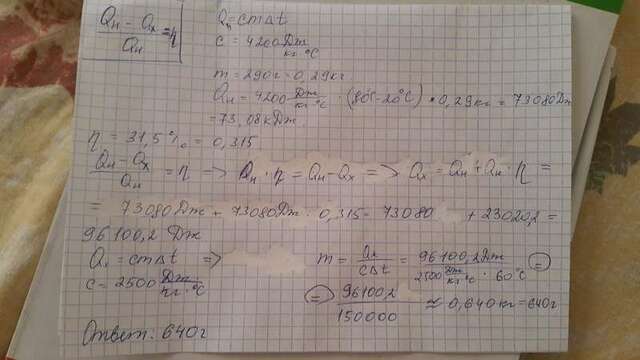 Qн - Qх / Qн = η
Qн = cmΔt
c = 4200 Дж/кг °C
m = 290г = 0,29кг
Qн = 4200 Дж/кг °C · (80°C - 20°C) · 0,29кг = 73080Дж
= 73,08кДж
η = 31,5% = 0,315
Qн - Qх / Qн = η => Qн · η = Qн - Qх => Qх = Qн + Qн · η =
= 73080 Дж + 73080Дж · 0,315 = 73080 + 23020,2 =
96100,2 Дж
Q = cmΔt => m = Qх / cΔt = 96100,2Дж / 2500 Дж/кг °C · 60°C =
c = 2500 Дж/кг · °C
= 96100,2 / 150000 ≈ 0,640кг = 640г
Ответ: 640г